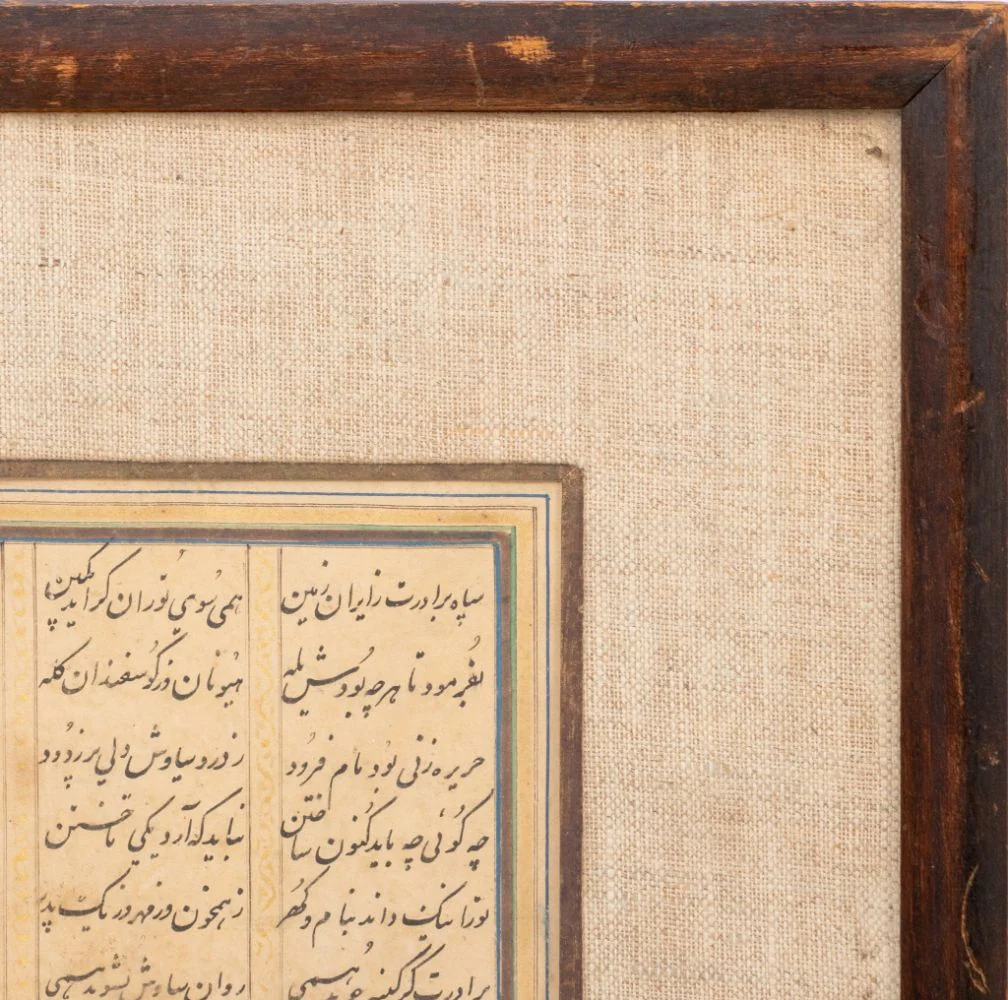 سپاه برادرت ز ایران زمین همی سوی توران گراید بکین
بفرمود تا هرچه بودش یله هیونان وز گوسفندان گله
جریره زنی بود مام فرود ز درد سیاوش دلی پر ز دود
چه گوئی چه باید کنون ساختن نباید که آرد یکی تاختن
ترا نیک داند بنام و گهر ز همخون وز مهر وز یک پدر
برادرت گر کینه جوید همی روان سیاوش بشوید همی